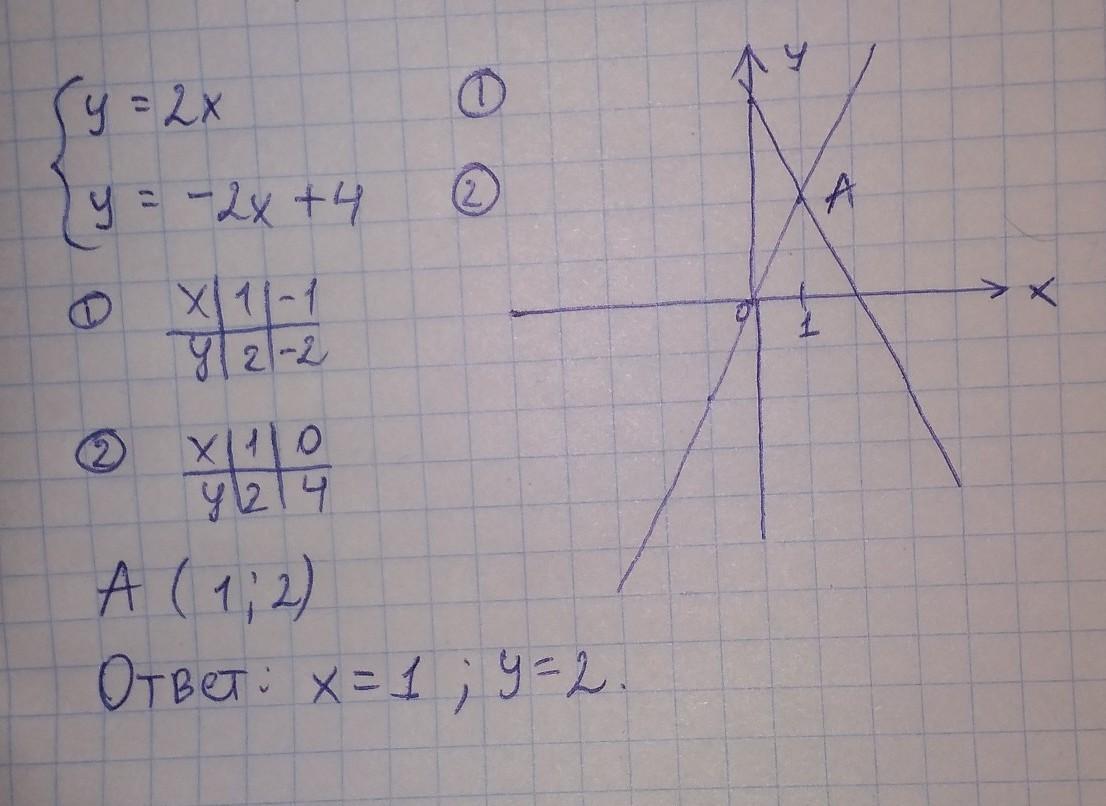 y = 2x ①
y = -2x + 4 ②
① x | 1 | -1
y | 2 | -2
② x | 1 | 0
y | 2 | 4
A (1; 2)
Ответ: x = 1; y = 2.
y
A
0
1
x